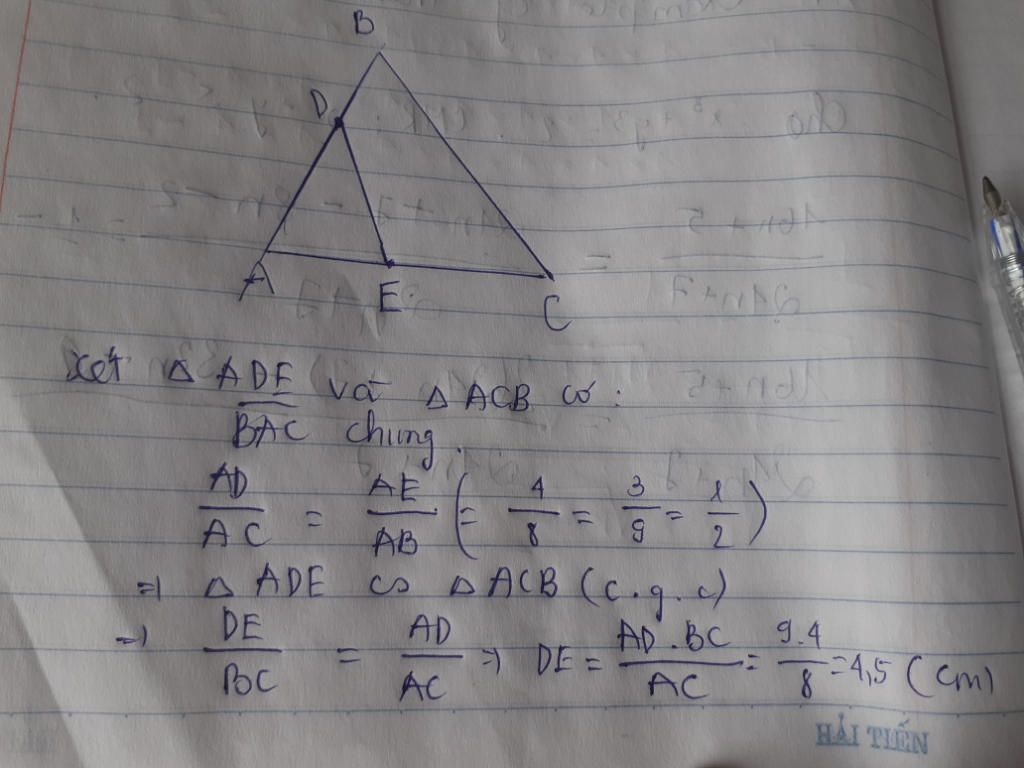 B
D
A
E
C
Xét △ ADE và △ ACB có:
BAC chung.
AD/AC = AE/AB (= 4/8 = 3/9 = 1/2)
=> △ ADE ∽ △ ACB (c.g.c)
=> DE/BC = AD/AC => DE = AD.BC/AC = 9.4/8 = 4,5 (cm)
HẢI TIẾN